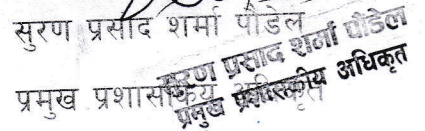 सुरण प्रसाद शर्मा पौडेल
प्रमुख प्रशासकिय अधिकृत
सुरण प्रसाद शर्मा पौडेल
प्रमुख प्रशासकीय अधिकृत